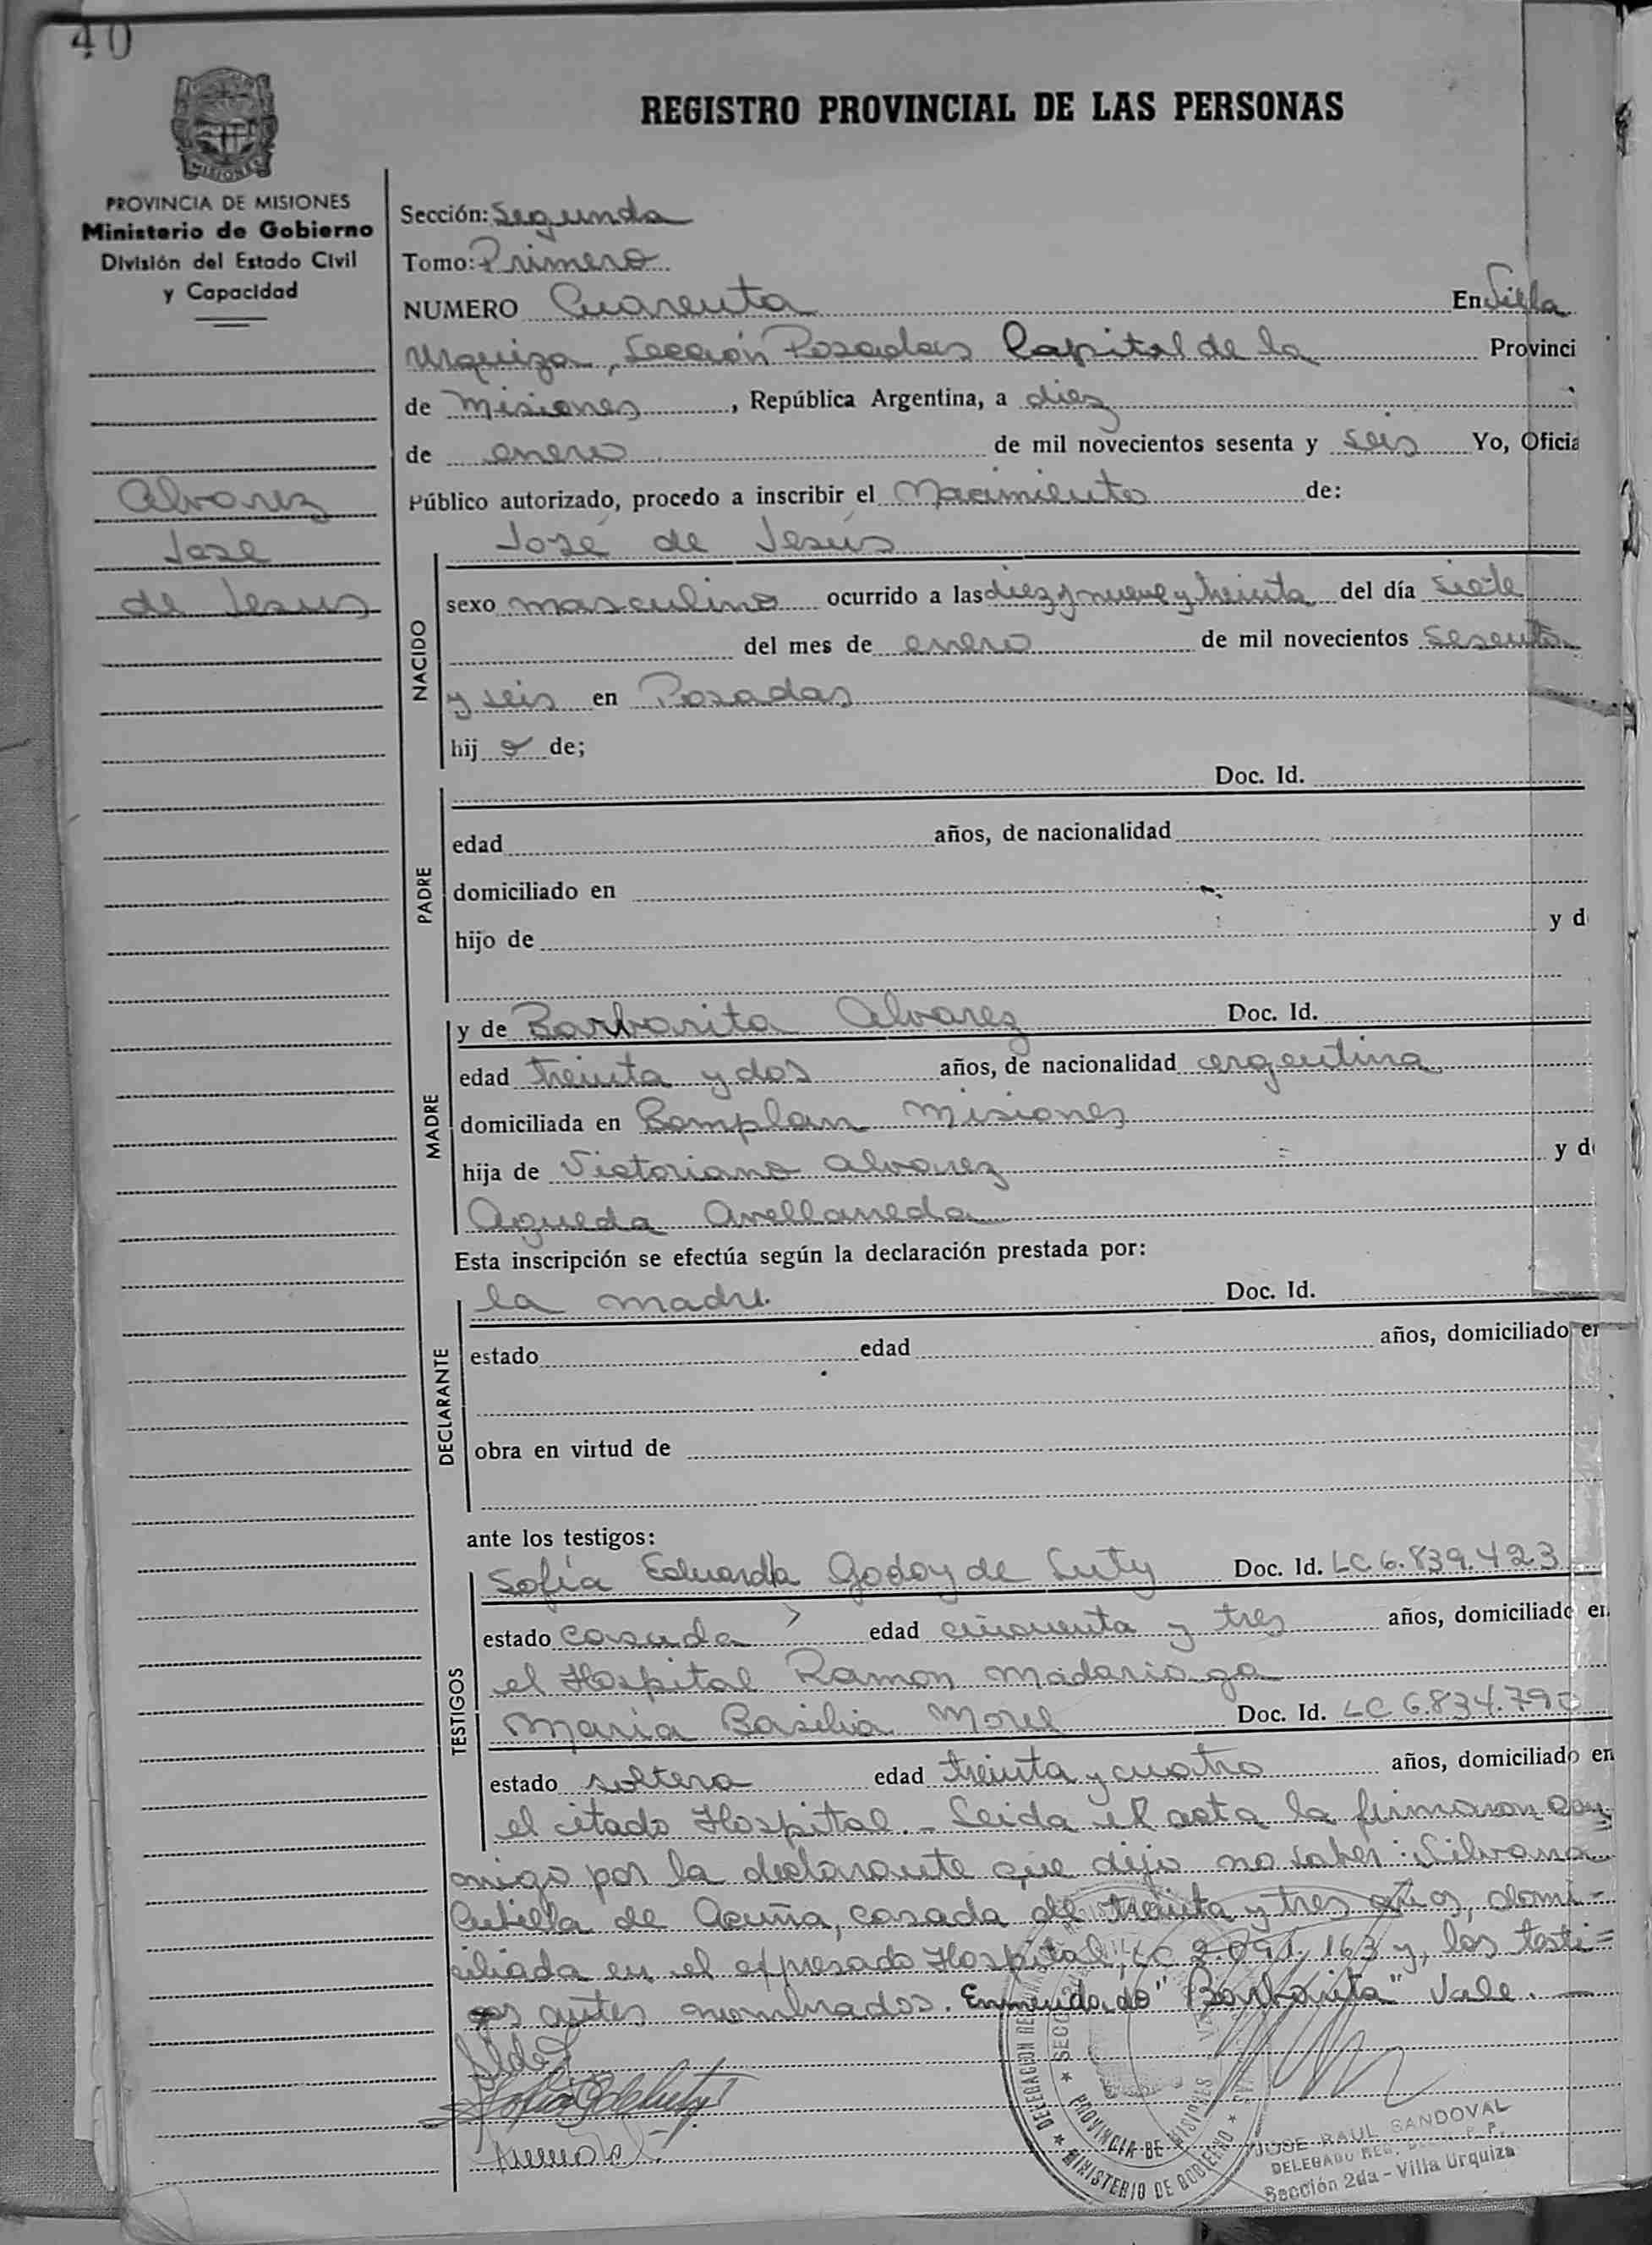 40
MISIONES
REGISTRO PROVINCIAL DE LAS PERSONAS
PROVINCIA DE MISIONES
Ministerio de Gobierno
División del Estado Civil
y Capacidad
Alvarez
Jose
de Jesus
Sección: Segunda
Tomo: Primero
NUMERO Cuarenta En Villa
Urquiza, Sección Posadas Capital de la Provinci
de Misiones, República Argentina, a diez
de enero de mil novecientos sesenta y seis Yo, Oficia
Público autorizado, procedo a inscribir el Nacimiento de:
José de Jesús
NACIDO
sexo masculino ocurrido a las diez y nueve y treinta del día siete
del mes de enero de mil novecientos sesenta
y seis en Posadas
hij o de;
PADRE
Doc. Id.
edad años, de nacionalidad
domiciliado en
hijo de y d
MADRE
y de Barbarita Alvarez Doc. Id.
edad treinta y dos años, de nacionalidad argentina
domiciliada en Bomplan Misiones
hija de Victoriano Alvarez y d
Agueda Avellaneda
Esta inscripción se efectúa según la declaración prestada por:
DECLARANTE
la madre. Doc. Id.
estado edad años, domiciliado en
obra en virtud de
ante los testigos:
TESTIGOS
Sofía Eduarda Godoy de Luty Doc. Id. LC 6.839.423
estado casada edad cincuenta y tres años, domiciliado en
el Hospital Ramon Madariaga
Maria Basilia Morel Doc. Id. LC 6.834.790
estado soltera edad treinta y cuatro años, domiciliado en
el citado Hospital.- Leida el acta la firmaron con
migo por la declarante que dijo no saber: Silvana
de Acuña, casada de treinta y tres años, domi-
ciliada en el expresado Hospital, LC 2.091.163 y, los testi=
gos antes nombrados. Enmendado "Barbarita" Vale.
DELEGACION
SECC
PROVINCIA DE MISIONES
MINISTERIO DE GOBIERNO
JOSE RAUL SANDOVAL
DELEGADO REG.
Sección 2da - Villa Urquiza